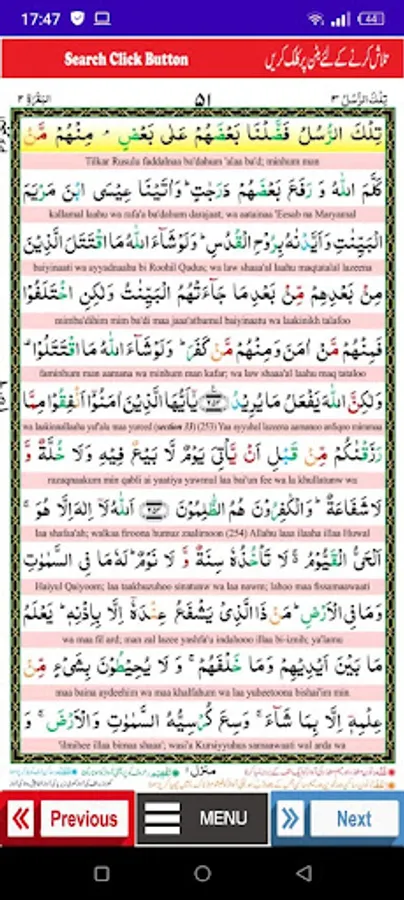 17:47
44
Search Click Button تلاش کرنے کے لئے بٹن پر کلک کریں
البقرة ٢ ٥١ تلك الرسل ٣
تِلْكَ الرُّسُلُ فَضَّلْنَا بَعْضَهُمْ عَلٰى بَعْضٍ ۘ مِنْهُمْ مَّنْ
Tilkar Rusulu faddalnaa ba'dahum 'alaa ba'd; minhum man
كَلَّمَ اللّٰهُ وَ رَفَعَ بَعْضَهُمْ دَرَجٰتٍ ؕ وَ اٰتَيْنَا عِيْسَى ابْنَ مَرْيَمَ
kallamal laahu wa rafa'a ba'dahum darajaat; wa aatainaa 'Eesab na Maryamal
الْبَيِّنٰتِ وَ اَيَّدْنٰهُ بِرُوْحِ الْقُدُسِ ؕ وَ لَوْ شَآءَ اللّٰهُ مَا اقْتَتَلَ الَّذِيْنَ
baiyinaati wa ayyadnaahu bi Roohil Qudus; wa law shaaa'al laahu maqtatalal lazeena
مِنْۢ بَعْدِهِمْ مِّنْۢ بَعْدِ مَا جَآءَتْهُمُ الْبَيِّنٰتُ وَ لٰكِنِ اخْتَلَفُوْا
mimba'dihim mim ba'di maa jaaa'athumul baiyinaatu wa laakinikh talafoo
فَمِنْهُمْ مَّنْ اٰمَنَ وَ مِنْهُمْ مَّنْ كَفَرَ ؕ وَ لَوْ شَآءَ اللّٰهُ مَا اقْتَتَلُوْا ۟
faminhum man aamana wa minhum man kafar; wa law shaaa'al laahu maq tataloo
وَ لٰكِنَّ اللّٰهَ يَفْعَلُ مَا يُرِيْدُ ﴿٢٥٣﴾ يٰۤاَيُّهَا الَّذِيْنَ اٰمَنُوْۤا اَنْفِقُوْا مِمَّا
wa laakinnallaaha yaf'alu maa yureed (section 33) (253) Yaa ayyuhal lazeena aamanoo anfiqoo mimmaa
رَزَقْنٰكُمْ مِّنْ قَبْلِ اَنْ يَّاْتِيَ يَوْمٌ لَّا بَيْعٌ فِيْهِ وَ لَا خُلَّةٌ وَّ
razaqnaakum min qabli ai yaatiya yawmul laa bai'un fee wa la khullatunw wa
لَا شَفَاعَةٌ ؕ وَ الْكٰفِرُوْنَ هُمُ الظّٰلِمُوْنَ ﴿٢٥٤﴾ اَللّٰهُ لَاۤ اِلٰهَ اِلَّا هُوَ ۚ
laa shafaa'ah; walkaa firoona humuz zaalimoon (254) Allahu laaa ilaaha illaa Huwal
اَلْحَيُّ الْقَيُّوْمُ ۚ لَا تَاْخُذُهٗ سِنَةٌ وَّ لَا نَوْمٌ ؕ لَهٗ مَا فِي السَّمٰوٰتِ
Haiyul Qaiyoom; laa taakhuzuhoo sinatunw wa laa nawm; lahoo maa fissamaawaati
وَ مَا فِي الْاَرْضِ ؕ مَنْ ذَا الَّذِيْ يَشْفَعُ عِنْدَهٗۤ اِلَّا بِاِذْنِهٖ ؕ يَعْلَمُ
wa maa fil ard; man zal lazee yashfa'u indahooo illaa bi-iznih; ya'lamu
مَا بَيْنَ اَيْدِيْهِمْ وَ مَا خَلْفَهُمْ ۚ وَ لَا يُحِيْطُوْنَ بِشَيْءٍ مِّنْ
maa baina aydeehim wa maa khalfahum wa laa yuheetoona bishai'im min
عِلْمِهٖۤ اِلَّا بِمَا شَآءَ ۚ وَسِعَ كُرْسِيُّهُ السَّمٰوٰتِ وَ الْاَرْضَ ۚ
'ilmihee illaa bimaa shaaa'; wasi'a Kursiyyuhus samaawaati wal arda wa
منزل ١
Previous MENU Next